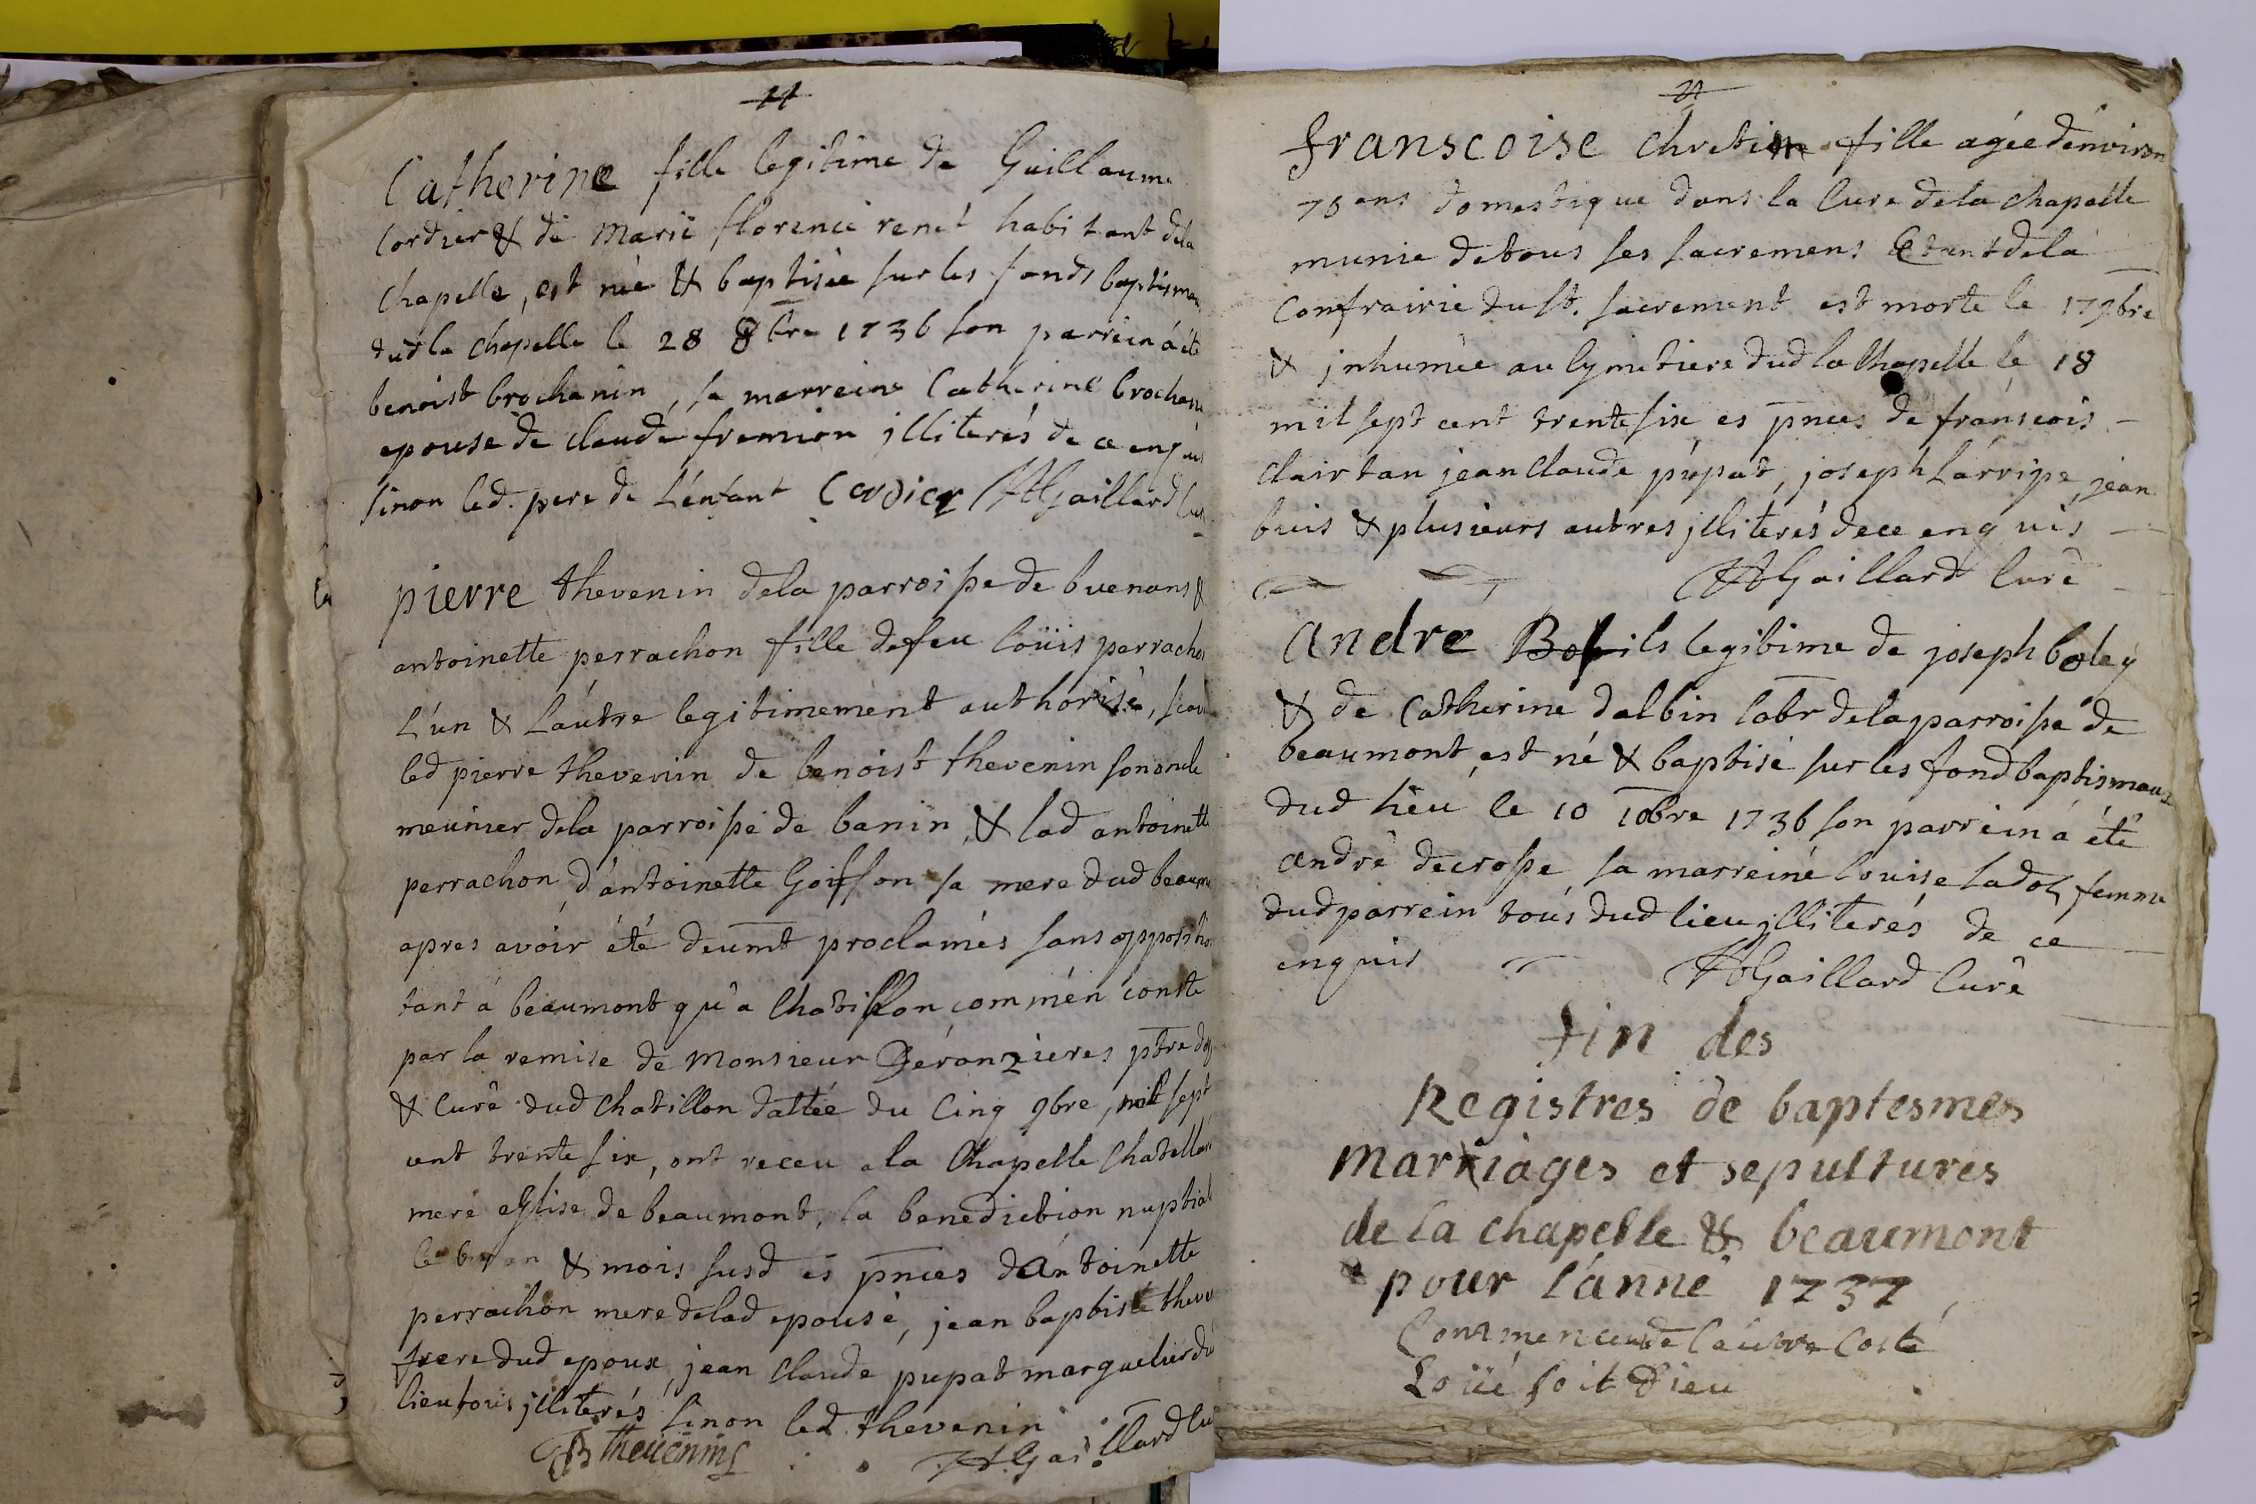 Catherine fille legitime de Guillaume
Cordier & de Marie florence renet habitant dela
chapelle, est née & baptisée sur les fonds baptismau
dud la chapelle le 28 8bre 1736 son parrein á été
benoist brochanin, sa marreine Catherine brochan
epouse de claude fremion jlliterés de ce enquis
sinon led. pere de l'enfant Cordier Gaillard Cur
pierre thevenin dela parroisse de buenans &
antoinette perrachon fille defeu loüis perrachon
L'un & L'autre legitimement authorisé, scav
led pierre thevenin de benoist thevenin son oncle
meunier dela parroisse de banin, & lad antoinette
perrachon d'antoinette Goisson sa mere dud beaumo
apres avoir été deumt proclamés sans oppositio
tant á beaumont qu'a Chatillon comm'én conste
par la remise de Monsieur Beronzieres ptre
& Curé dud Chatillon dattée du Cinq 9bre, mil sept
cent trente six, ont receu a la Chapelle Chatellar
mere eglise de beaumont, la benediction nuptial
& mois susd és pnces d'Antoinette
perrachon mere delad epouse, jean baptiste theve
frere dud epoux, jean claude pupat marguelier du
lieu tous jlliterés sinon led thevenin
thevenin Gaillard Cu
franscoise chretien fille agée d'environ
78 ans domestique dans la Cure dela chapelle
munie detous ses sacremens Etant dela
Confrairie du st. sacrement est morte le 17 9bre
& jnhumée au Cymetiere dud la Chapelle le 18
mil sept cent trente six es pnces de franscois
clairtan jean claude pupat, joseph Larripe, jean
buis & plusieurs autres jlliterés dece enquis
Gaillard Curé
André fils legitime de joseph boley
& de Catherine dalbin labr dela parroisse de
beaumont est né & baptisé sur les fond baptismaux
dud lieu le 10 10bre 1736 son parrein á été
André decrosse, sa marreine Louise ladoz femme
dud parrein tous dud lieu jlliterés de ce
enquis Gaillard Curé
fin des
Registres de baptesmes
Marriages et sepultures
de la chapelle & beaumont
& pour l'année 1737
Commencer de l'autre Costé
Loüé soit Dieu